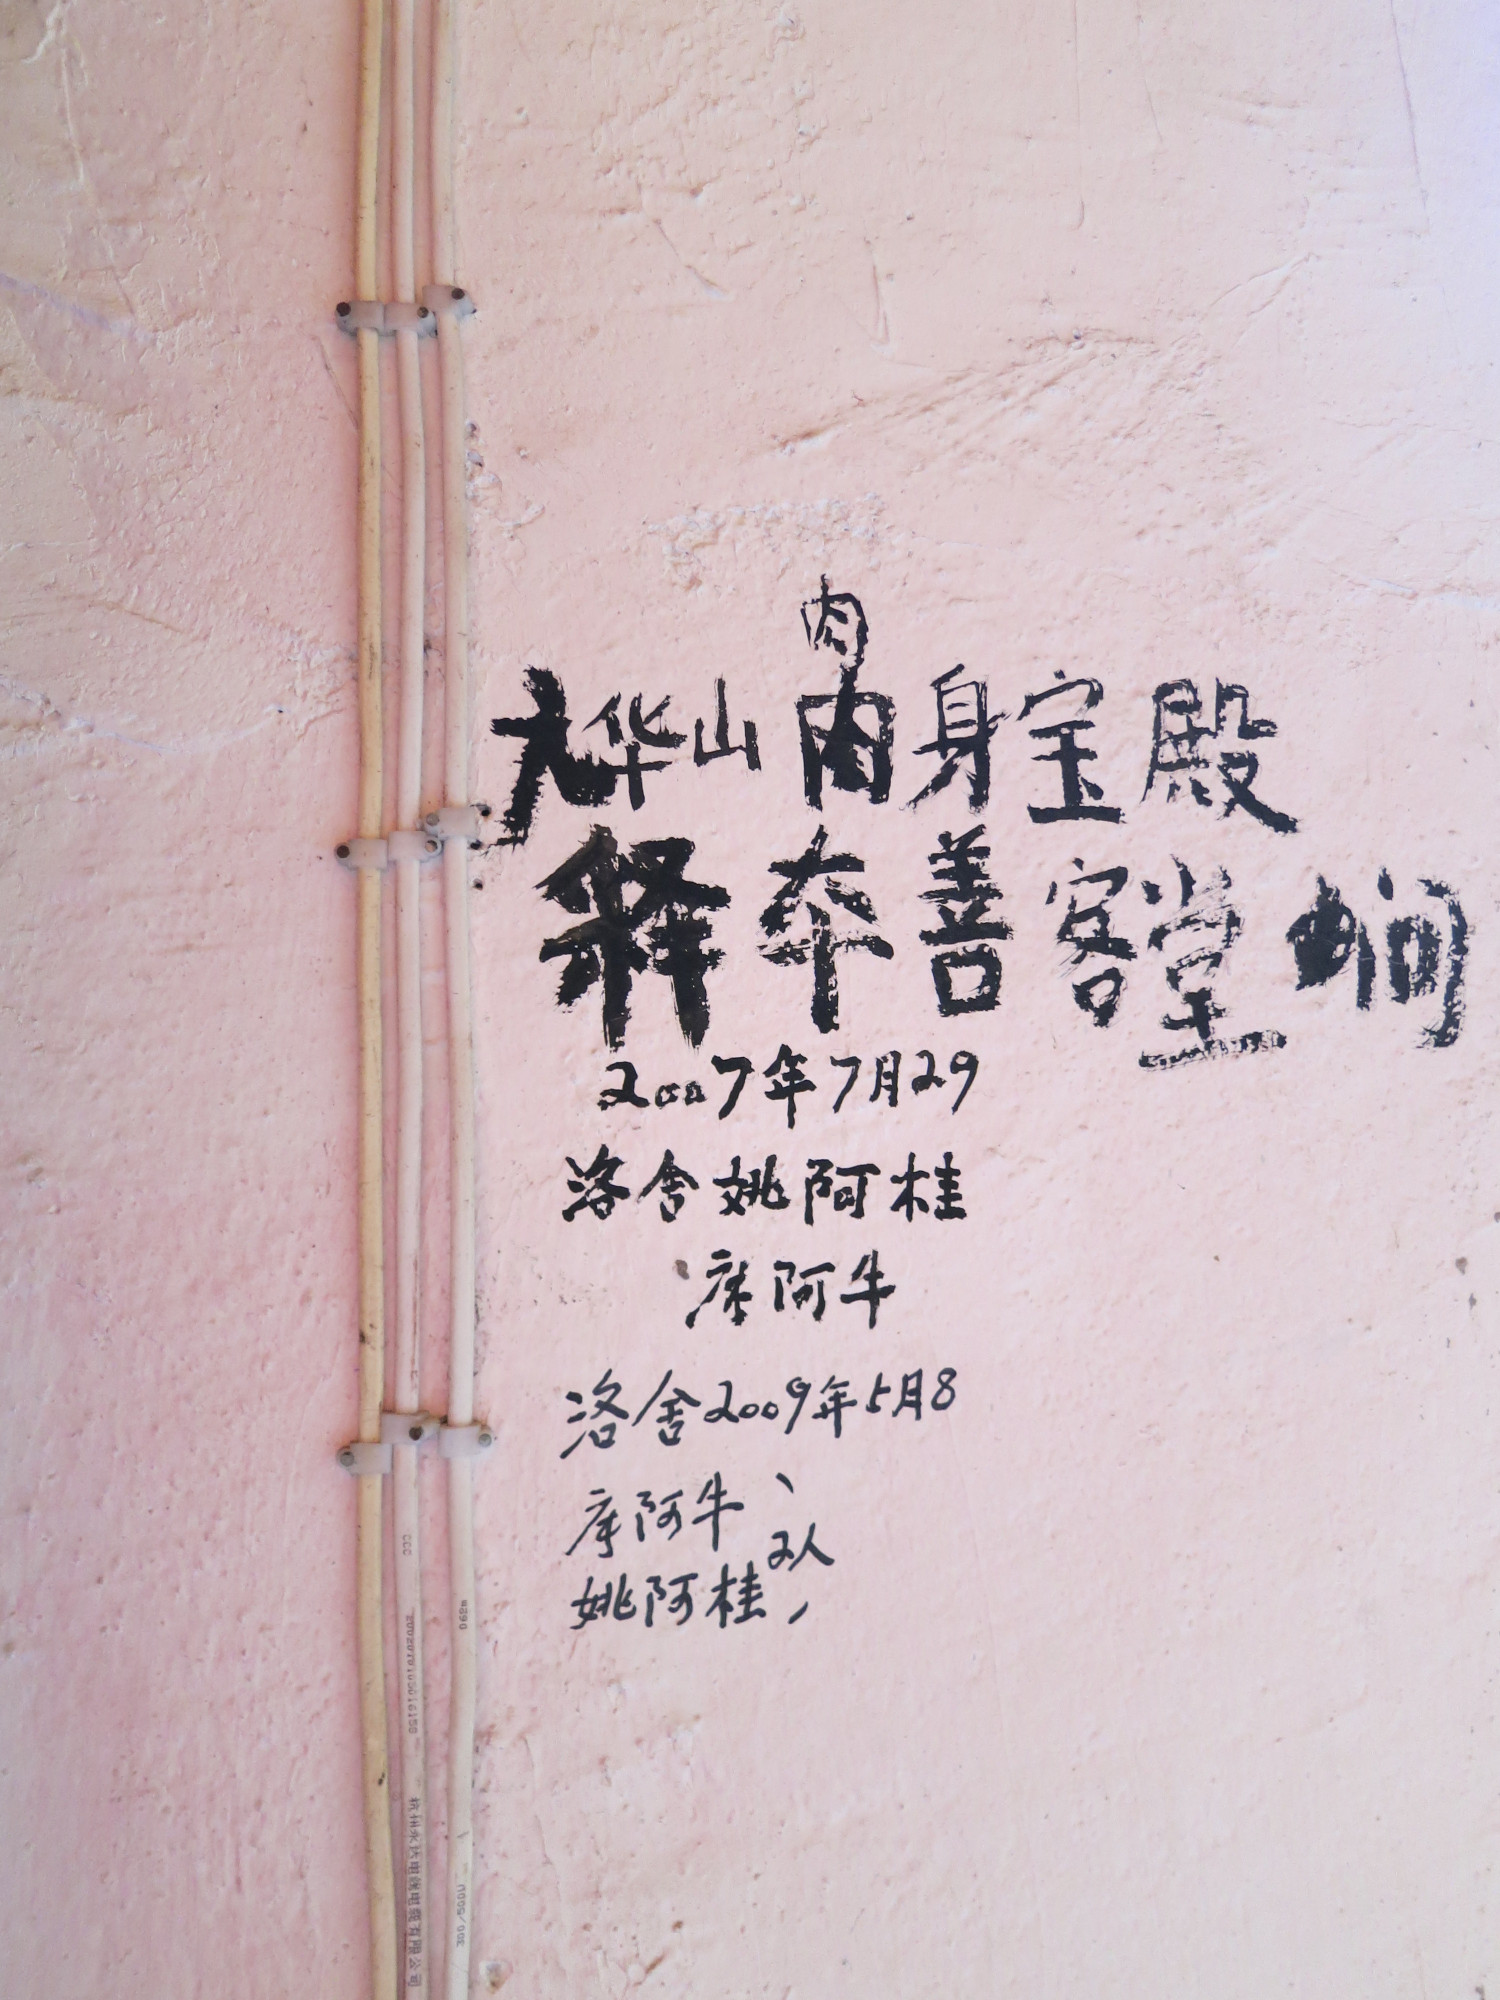 肉
九华山肉身宝殿
释本善客堂 间
2007年7月29
洛舍姚阿桂
阿牛
洛舍2009年5月8
阿牛、
2人
姚阿桂
062m
300/500V
杭州永达电线电缆有限公司
CCC